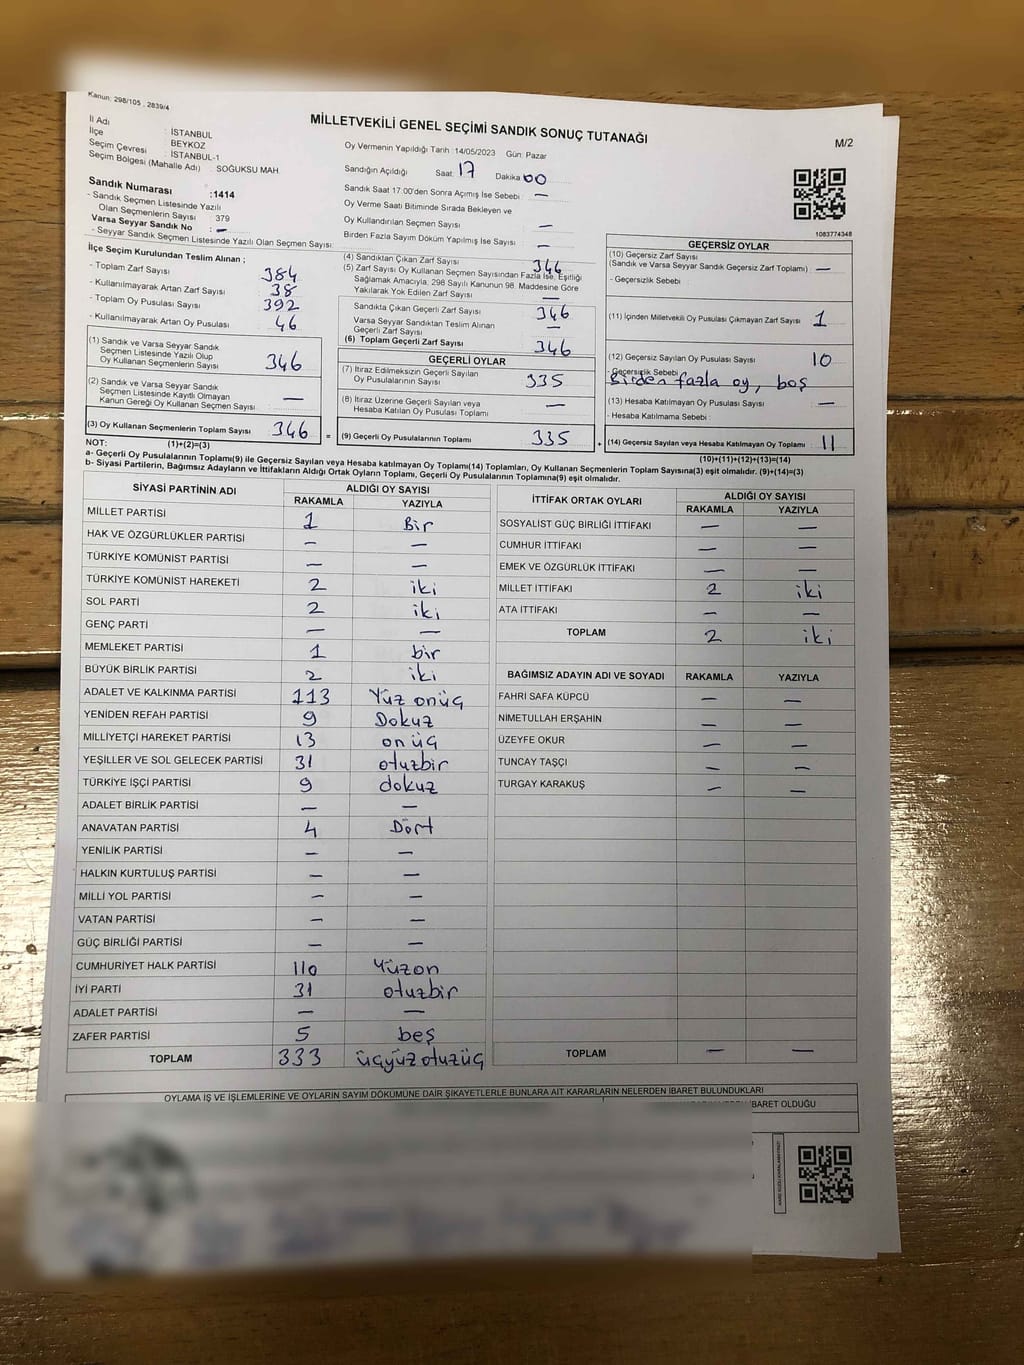 Kanun: 298/105 , 2839/4
MİLLETVEKİLİ GENEL SEÇİMİ SANDIK SONUÇ TUTANAĞI
M/2
İl Adı : İSTANBUL
İlçe : BEYKOZ
Seçim Çevresi : İSTANBUL-1
Seçim Bölgesi (Mahalle Adı) : SOĞUKSU MAH.
Sandık Numarası :1414
- Sandık Seçmen Listesinde Yazılı
Olan Seçmenlerin Sayısı : 379
Varsa Seyyar Sandık No : —
- Seyyar Sandık Seçmen Listesinde Yazılı Olan Seçmen Sayısı:
Oy Vermenin Yapıldığı Tarih :14/05/2023 Gün: Pazar
Sandığın Açıldığı Saat: 17 Dakika 00
Sandık Saat 17:00'den Sonra Açımış İse Sebebi : —
Oy Verme Saati Bitiminde Sırada Bekleyen ve
Oy Kullandırılan Seçmen Sayısı : —
Birden Fazla Sayım Döküm Yapılmış İse Sayısı : —
1083774348
İlçe Seçim Kurulundan Teslim Alınan ;
- Toplam Zarf Sayısı : 384
- Kullanılmayarak Artan Zarf Sayısı : 38
- Toplam Oy Pusulası Sayısı : 392
- Kullanılmayarak Artan Oy Pusulası : 46
(1) Sandık ve Varsa Seyyar Sandık
Seçmen Listesinde Yazılı Olup
Oy Kullanan Seçmenlerin Sayısı : 346
(2) Sandık ve Varsa Seyyar Sandık
Seçmen Listesinde Kayıtlı Olmayan
Kanun Gereği Oy Kullanan Seçmen Sayısı : —
(3) Oy Kullanan Seçmenlerin Toplam Sayısı : 346
(1)+(2)=(3)
(4) Sandıktan Çıkan Zarf Sayısı : 346
(5) Zarf Sayısı Oy Kullanan Seçmen Sayısından Fazla İse, Eşitliği
Sağlamak Amacıyla, 298 Sayılı Kanunun 98. Maddesine Göre
Yakılarak Yok Edilen Zarf Sayısı : —
Sandıkta Çıkan Geçerli Zarf Sayısı : 346
Varsa Seyyar Sandıktan Teslim Alınan
Geçerli Zarf Sayısı : —
(6) Toplam Geçerli Zarf Sayısı : 346
GEÇERLİ OYLAR
(7) İtiraz Edilmeksizin Geçerli Sayılan
Oy Pusulalarının Sayısı : 335
(8) İtiraz Üzerine Geçerli Sayılan veya
Hesaba Katılan Oy Pusulası Toplamı : —
= (9) Geçerli Oy Pusulalarının Toplamı : 335
GEÇERSİZ OYLAR
(10) Geçersiz Zarf Sayısı
(Sandık ve Varsa Seyyar Sandık Geçersiz Zarf Toplamı) : —
- Geçersizlik Sebebi :
(11) İçinden Milletvekili Oy Pusulası Çıkmayan Zarf Sayısı : 1
(12) Geçersiz Sayılan Oy Pusulası Sayısı : 10
- Geçersizlik Sebebi :
Birden fazla oy, boş
(13) Hesaba Katılmayan Oy Pusulası Sayısı : —
- Hesaba Katılmama Sebebi :
+ (14) Geçersiz Sayılan veya Hesaba Katılmayan Oy Toplamı : 11
(10)+(11)+(12)+(13)=(14)
NOT:
a- Geçerli Oy Pusulalarının Toplamı(9) ile Geçersiz Sayılan veya Hesaba katılmayan Oy Toplamı(14) Toplamları, Oy Kullanan Seçmenlerin Toplam Sayısına(3) eşit olmalıdır. (9)+(14)=(3)
b- Siyasi Partilerin, Bağımsız Adayların ve İttifakların Aldığı Ortak Oyların Toplamı, Geçerli Oy Pusulalarının Toplamına(9) eşit olmalıdır.
SİYASİ PARTİNİN ADI ALDIĞI OY SAYISI
RAKAMLA YAZIYLA
MİLLET PARTİSİ 1 Bir
HAK VE ÖZGÜRLÜKLER PARTİSİ — —
TÜRKİYE KOMÜNİST PARTİSİ — —
TÜRKİYE KOMÜNİST HAREKETİ 2 iki
SOL PARTİ 2 iki
GENÇ PARTİ — —
MEMLEKET PARTİSİ 1 bir
BÜYÜK BİRLİK PARTİSİ 2 iki
ADALET VE KALKINMA PARTİSİ 113 Yüz onüç
YENİDEN REFAH PARTİSİ 9 Dokuz
MİLLİYETÇİ HAREKET PARTİSİ 13 onüç
YEŞİLLER VE SOL GELECEK PARTİSİ 31 otuzbir
TÜRKİYE İŞÇİ PARTİSİ 9 dokuz
ADALET BİRLİK PARTİSİ — —
ANAVATAN PARTİSİ 4 Dört
YENİLİK PARTİSİ — —
HALKIN KURTULUŞ PARTİSİ — —
MİLLİ YOL PARTİSİ — —
VATAN PARTİSİ — —
GÜÇ BİRLİĞİ PARTİSİ — —
CUMHURİYET HALK PARTİSİ 110 Yüzon
İYİ PARTİ 31 otuzbir
ADALET PARTİSİ — —
ZAFER PARTİSİ 5 beş
TOPLAM 333 üçyüzotuzüç
İTTİFAK ORTAK OYLARI ALDIĞI OY SAYISI
RAKAMLA YAZIYLA
SOSYALİST GÜÇ BİRLİĞİ İTTİFAKI — —
CUMHUR İTTİFAKI — —
EMEK VE ÖZGÜRLÜK İTTİFAKI — —
MİLLET İTTİFAKI 2 iki
ATA İTTİFAKI — —
TOPLAM 2 iki
BAĞIMSIZ ADAYIN ADI VE SOYADI RAKAMLA YAZIYLA
FAHRİ SAFA KÜPCÜ — —
NİMETULLAH ERŞAHİN — —
ÜZEYFE OKUR — —
TUNCAY TAŞÇI — —
TURGAY KARAKUŞ — —
TOPLAM — —
OYLAMA İŞ VE İŞLEMLERİNE VE OYLARIN SAYIM DÖKÜMÜNE DAİR ŞİKAYETLERLE BUNLARA AİT KARARLARIN NELERDEN İBARET BULUNDUKLARI
İBARET OLDUĞU